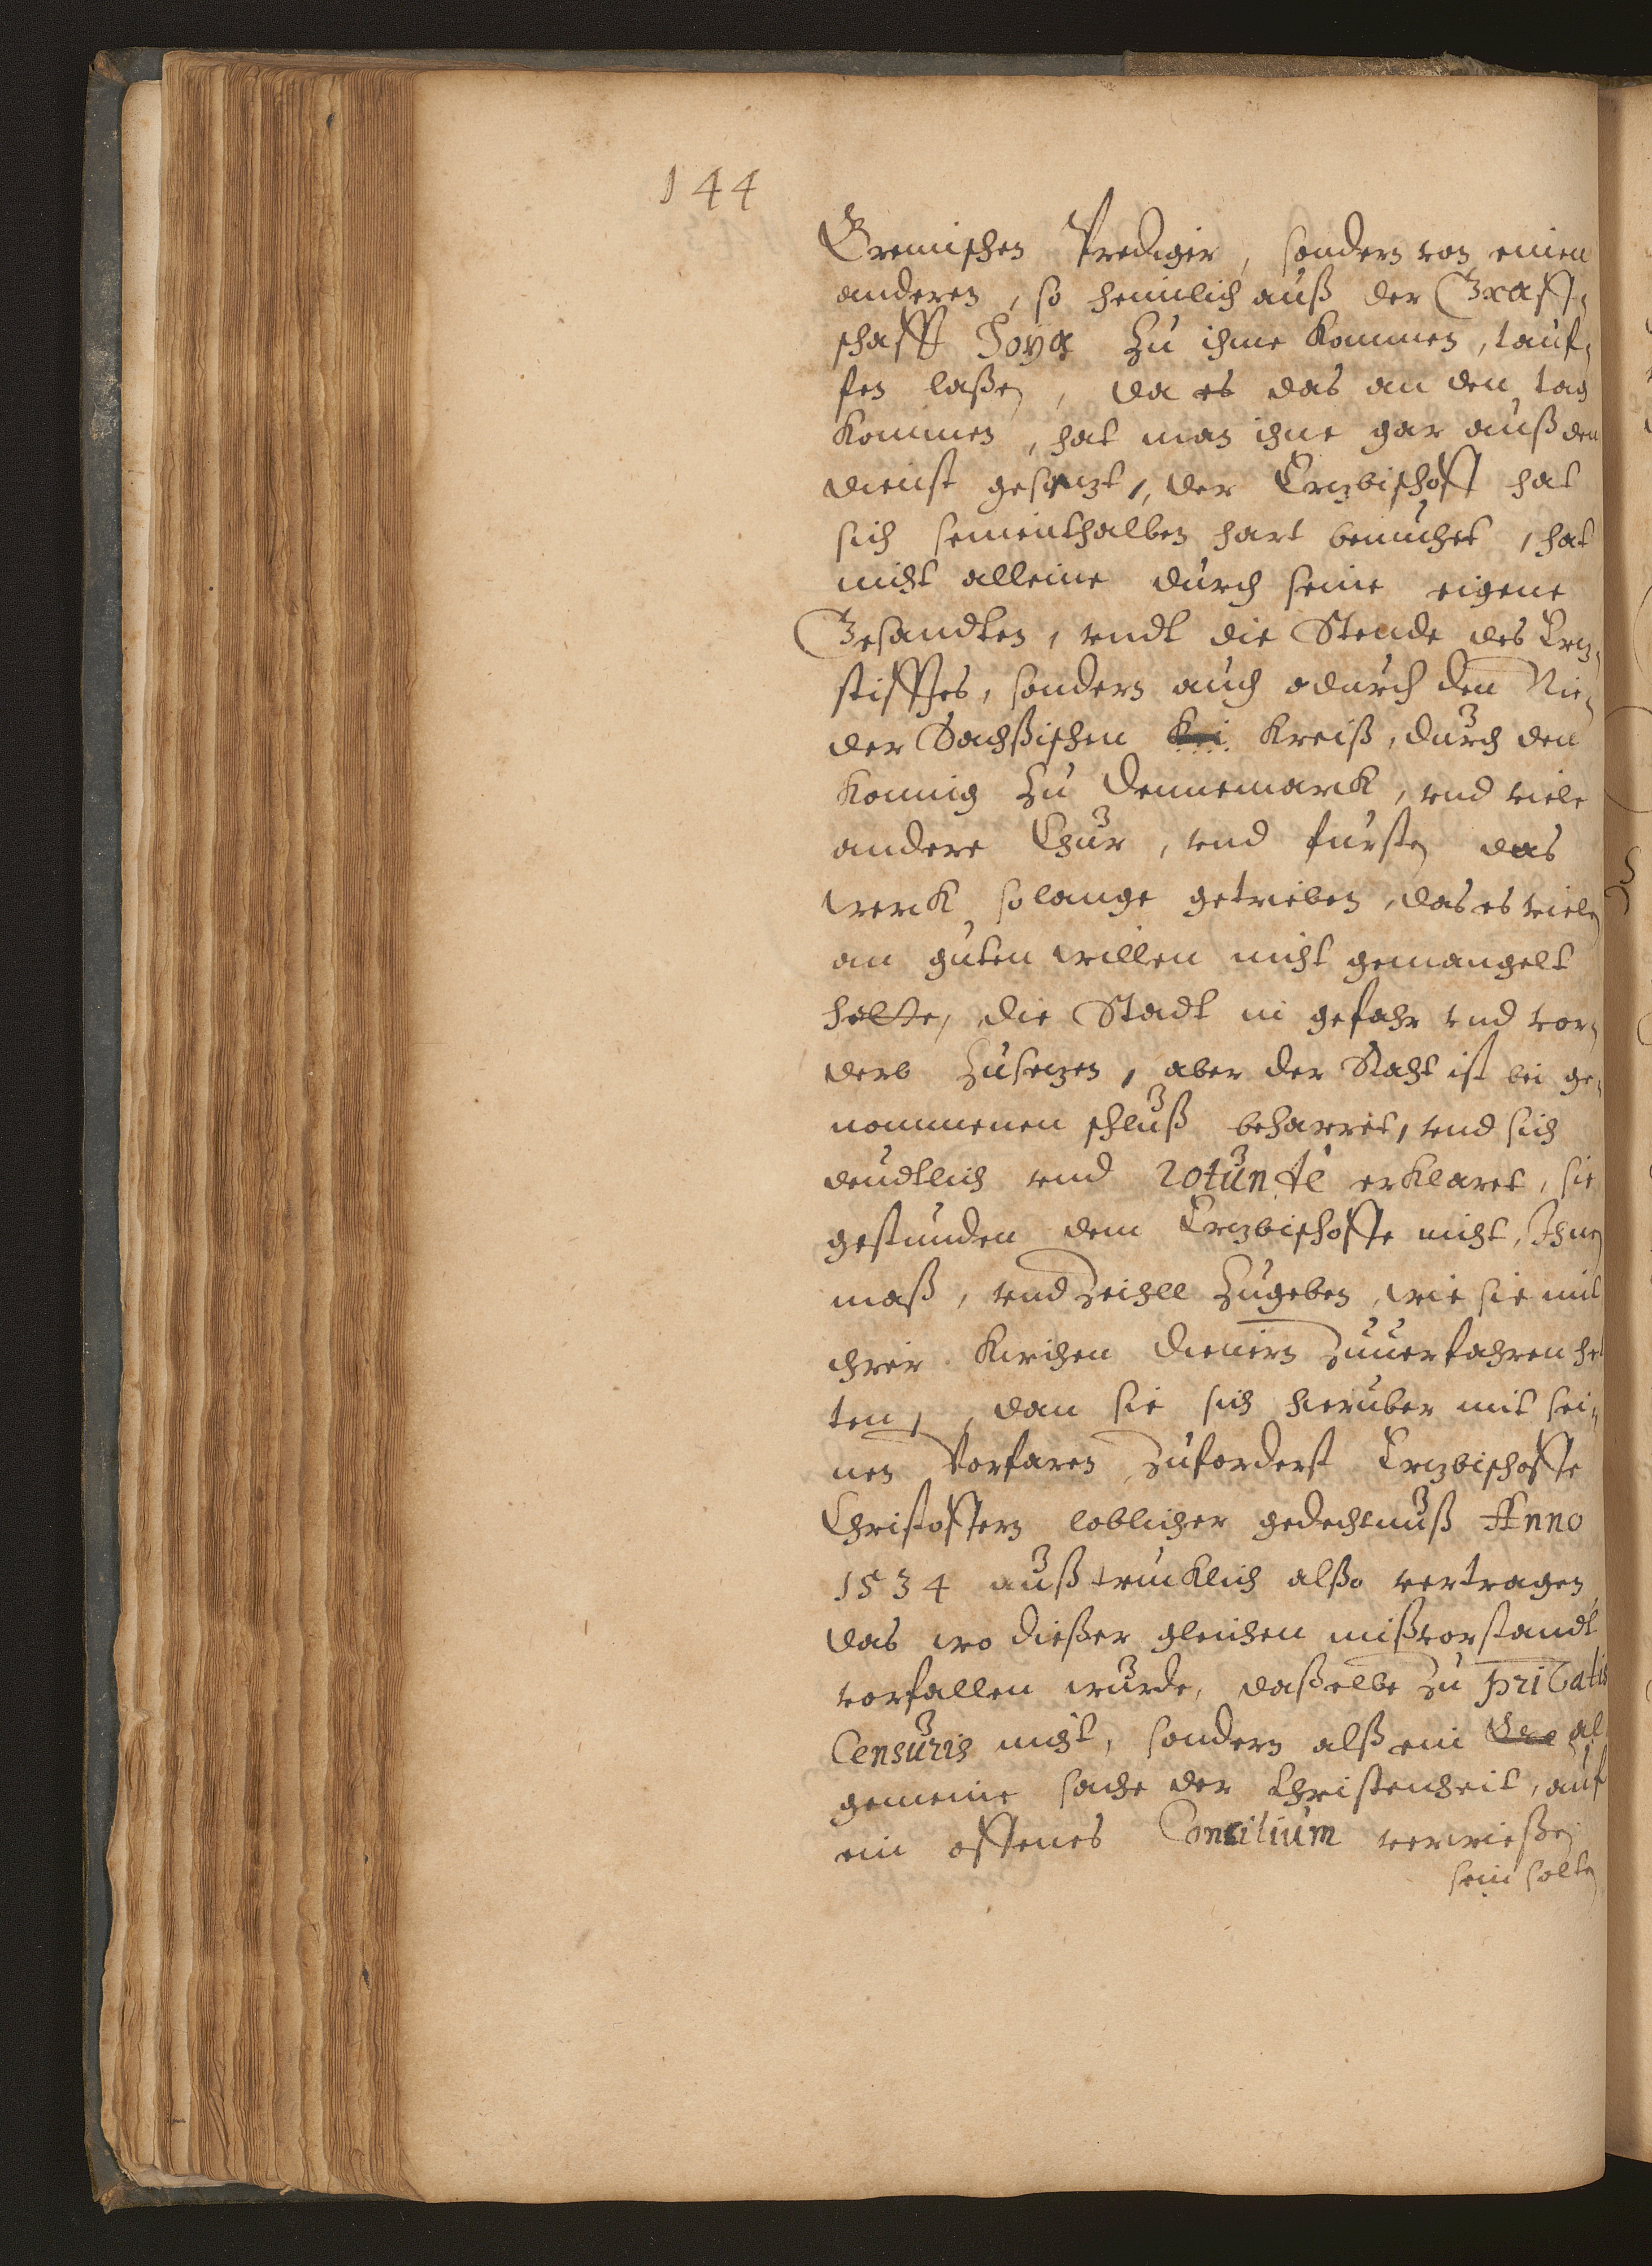 144
Bremischen Prediger, sondern von einen
anderen, so heimlich auß der Graff-
schafft Hoya zu ihme kommen, tauf-
fen laßen, da es das an den tag
kommen, hat man ihne gar auß den
dienst gesetzt, der Ertzbischoff hat
sich seinenthalben hart bemuhet, hat
nicht alleine durch seine eigene
Gesandten, vndt die Stende des Ertz-
stifftes, sondern auch durch den Nie-
der Sachßischen Kreiß, durch den
Konnig zu Dennemarck, vnd viele
andere Chur, vnd fursten das
werck so lange getrieben, das es vielen
an guten willen nicht gemangelt
hette, die Stadt in gefahr vnd vor-
derb zusetzen, aber der Raht ist bei ge-
nommenen schluß beharret, vnd sich
deudtlich vnd rotunde erklaret, sie
gestunden dem Ertzbischoffe nicht, Ihnen
maß, vnd Zeihll zugeben, wie sie mit
ihrer Kirchen dienern zuuerfahren het
ten, dan sie sich hieruber mit sei-
nen Vorfaren zuforderst Ertzbischoffe
Christoffern loblicher gedechtnuß Anno
1534 außtrucklich alßo vertragen,
das wo dießer gleichen mißvorstandt
vorfallen wurde, daßelbe zu privatis
Censuris nicht, sondern alß ein al
gemeine sache der Christenheit, auf
ein offenes Concilium verwießen
sein solten